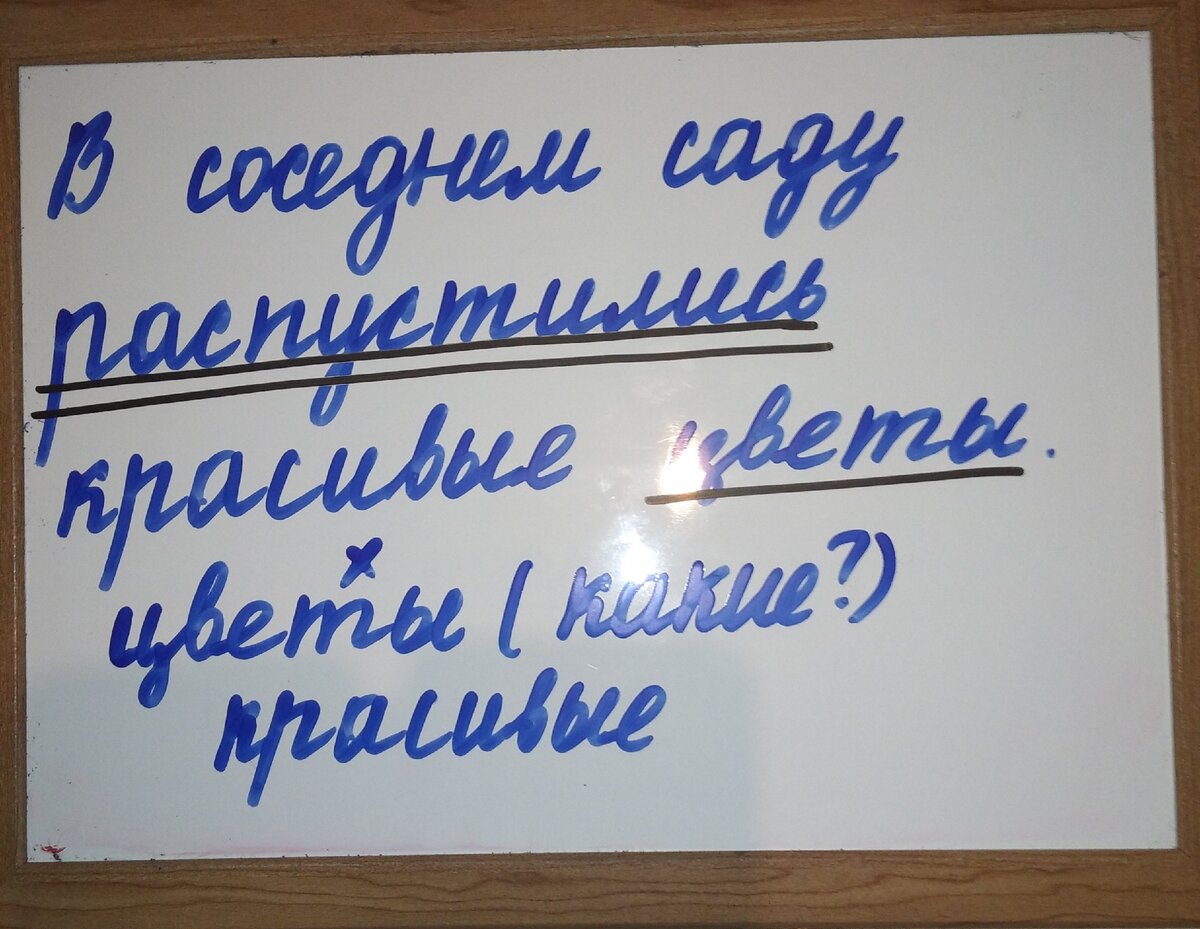 В соседнем саду
распустились
красивые цветы.
цветы (какие?)
красивые